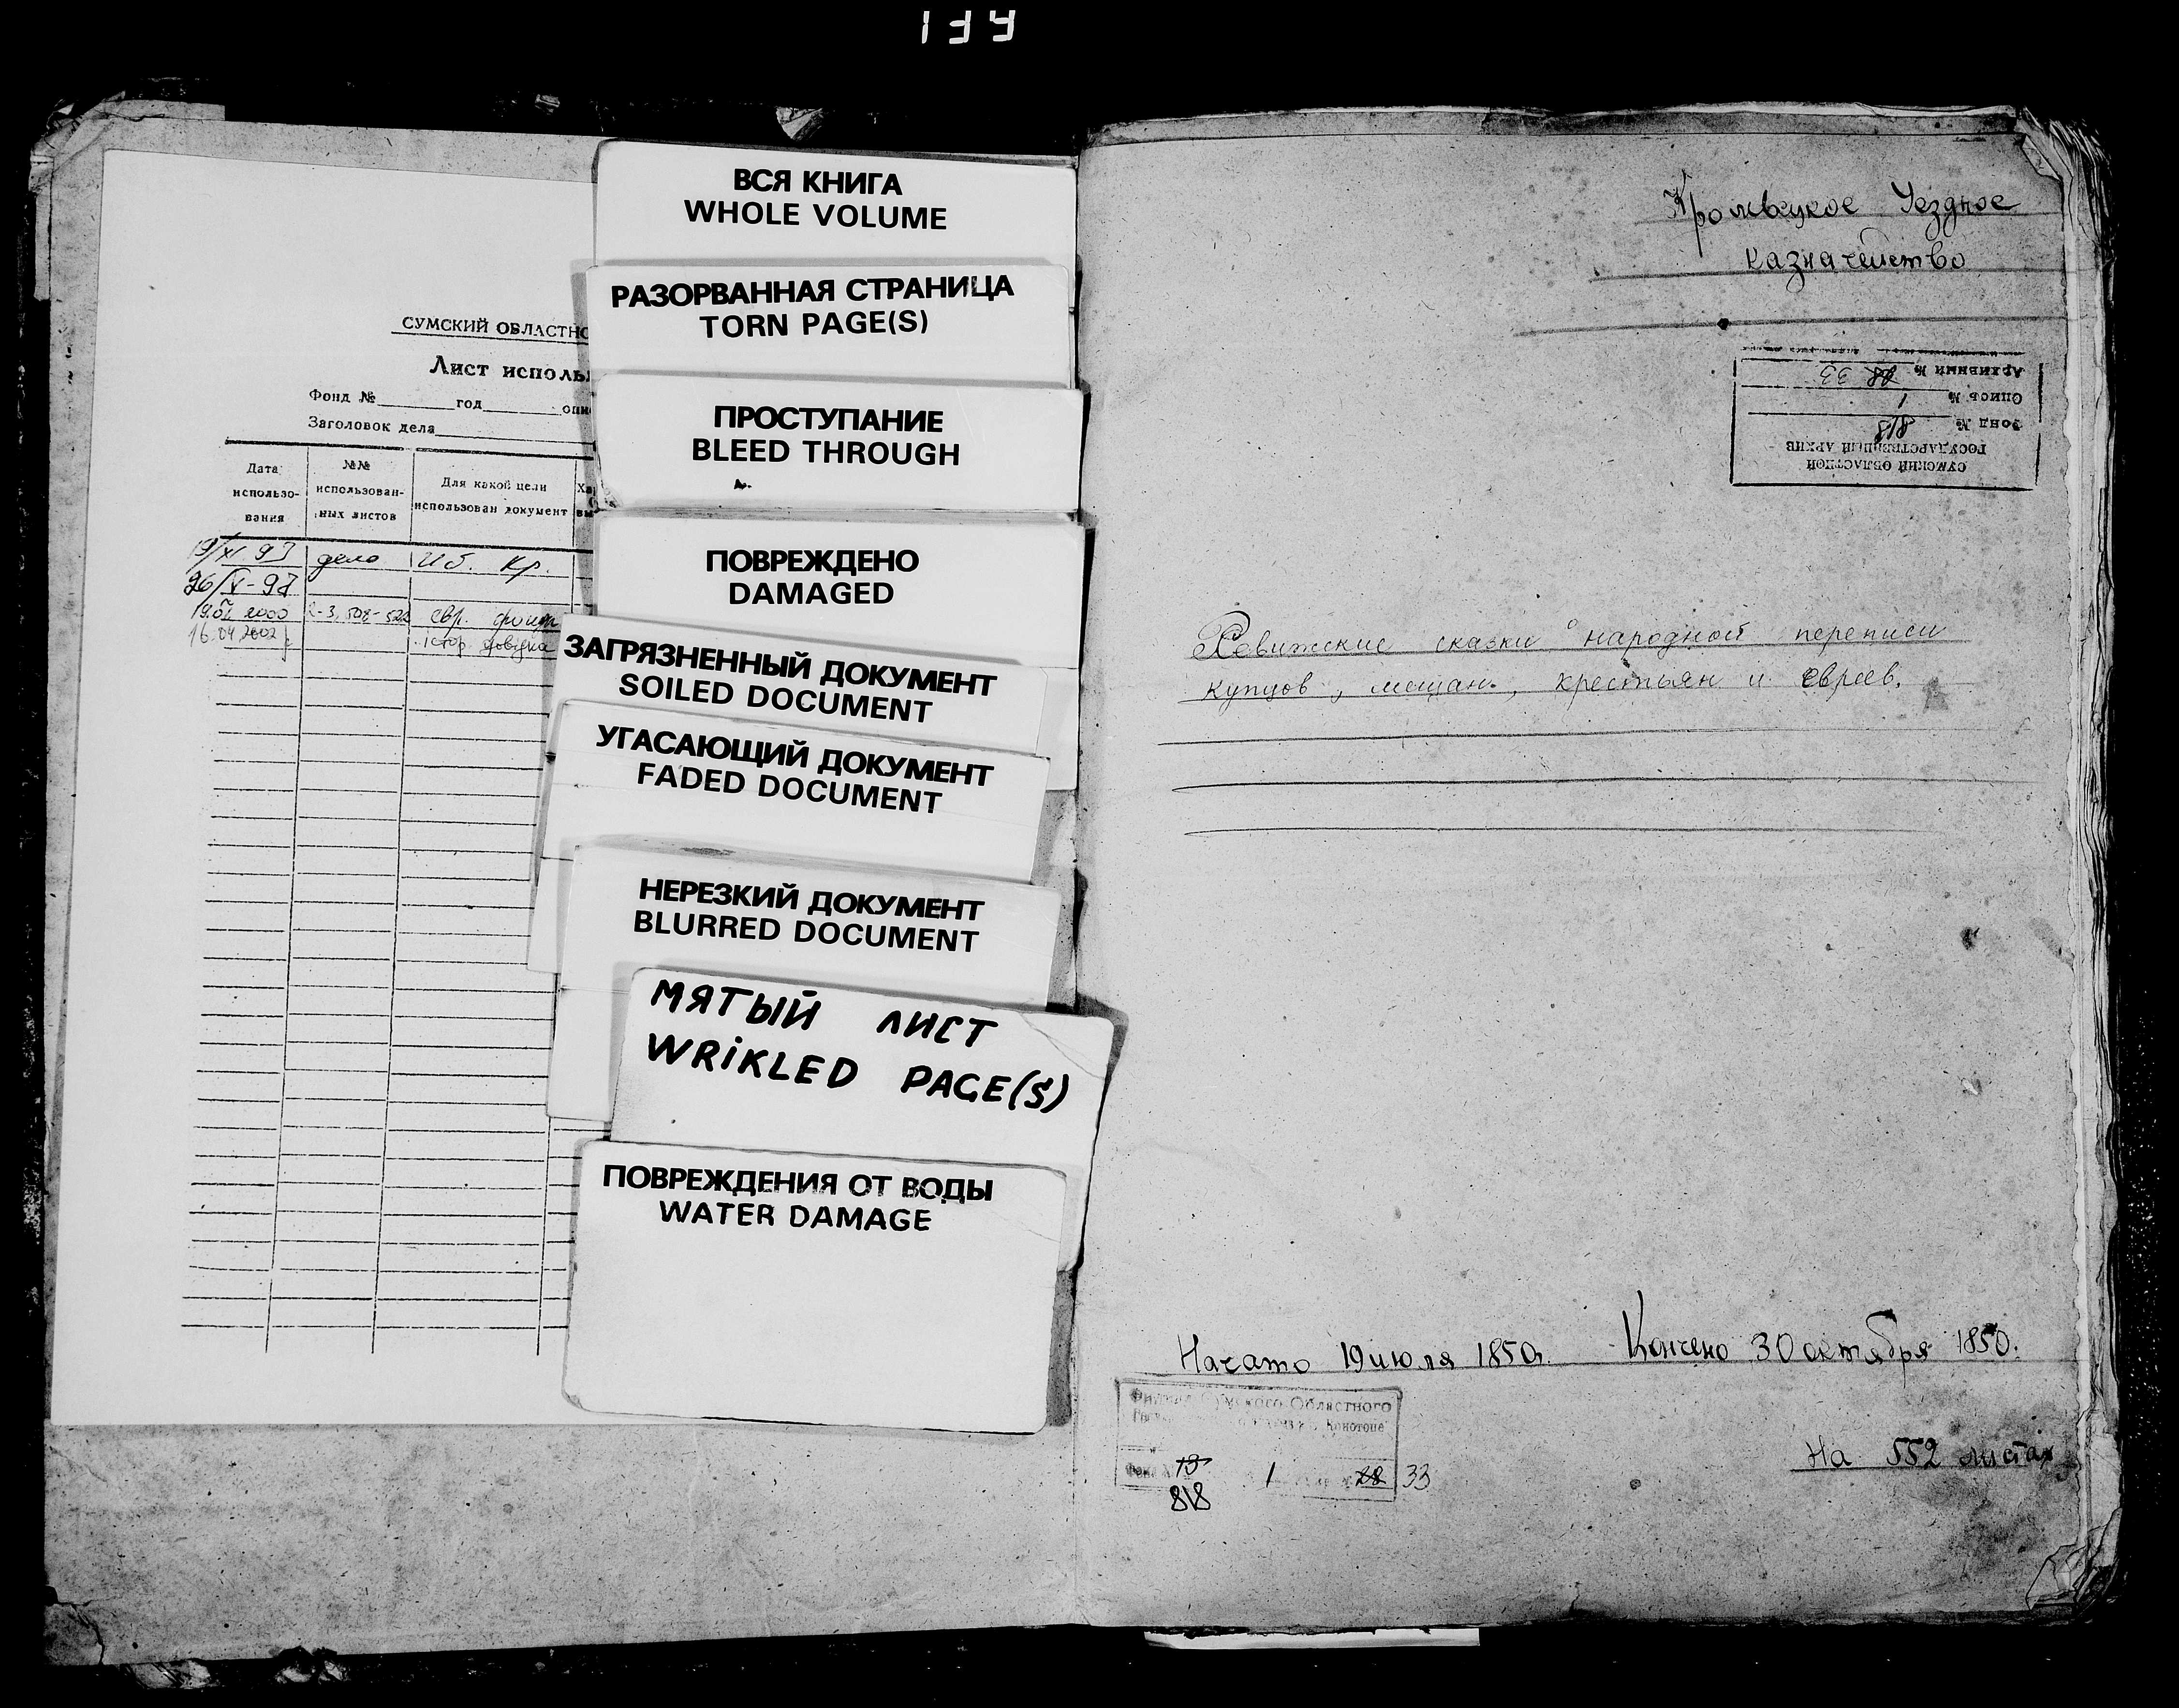 СУМСКИЙ ОБЛАСТНО
Лист исполь
Фонд № год опи
Заголовок дела
Дата использования
№№ использованных листов
Для какой цели использован документ
19/XI 93 дело Иб. Кр.
26/V-97
19.01 2000 508-522 евр.
16.04 2002 істор. довідка
ВСЯ КНИГА
WHOLE VOLUME
РАЗОРВАННАЯ СТРАНИЦА
TORN PAGE(S)
ПРОСТУПАНИЕ
BLEED THROUGH
ПОВРЕЖДЕНО
DAMAGED
ЗАГРЯЗНЕННЫЙ ДОКУМЕНТ
SOILED DOCUMENT
УГАСАЮЩИЙ ДОКУМЕНТ
FADED DOCUMENT
НЕРЕЗКИЙ ДОКУМЕНТ
BLURRED DOCUMENT
МЯТЫЙ ЛИСТ
WRiKLED PAGE(S)
ПОВРЕЖДЕНИЯ ОТ ВОДЫ
WATER DAMAGE
Кролвецкое Уездное
казначейство
СУМСКИЙ ОБЛАСТНОЙ
ГОСУДАРСТВЕННЫЙ АРХИВ
Фонд № 818
Опись № 1
Архивный № 28 33
Ревижские сказки о народной переписи
купцов, мещан, крестьян и евреев.
Начато 19 июля 1850г. Кончено 30 октября 1850.
Сумского Областного
Конотопе
13 1 28 33
818
На 552 листах